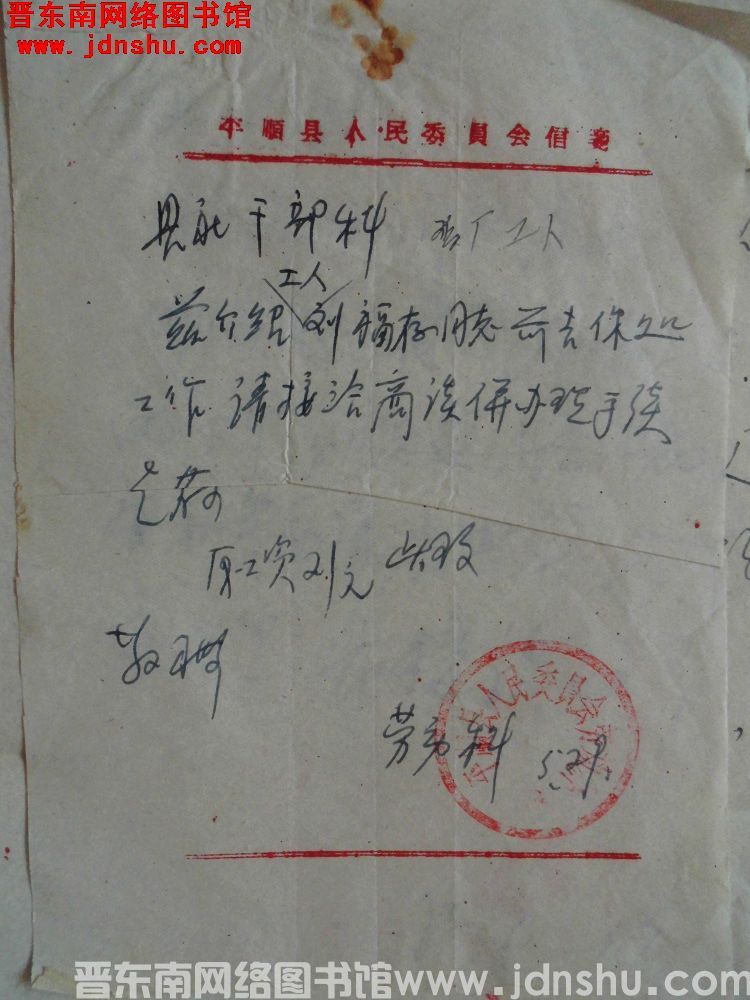 晋东南网络图书馆
www.jdnshu.com
平順县人民委員会信箋
县社干部科 工人
工人
茲介绍刘福存同志前去你处
工作请接洽商谈併办理手续
是荷
原工资31元 此致
敬礼
劳动科
平順县人民委員会
晋东南网络图书馆www.jdnshu.com